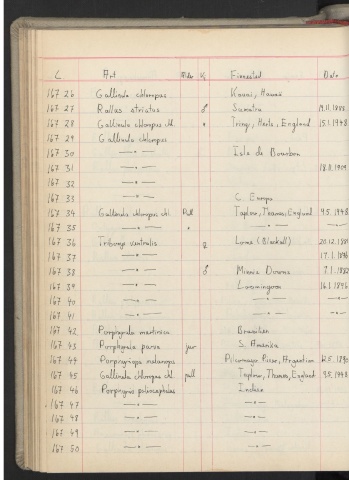 C Art Alder K. Finnested Date
167 26 Gallinula chloropus Kauai, Hawaii
167 27 Rallus striatus ♂ Sumatra 19.11.1888
167 28 Gallinula chloropus chl. " Tring, Herts, England 15.1.1948
167 29 Gallinula chloropus
167 30 —"— Isle de Bourbon
167 31 —"— 18.8.1909
167 32 —"—
167 33 —"— C. Europa
167 34 Gallinula chloropus chl. Pull Taplow, Thames, England 9.5.1948
167 35 —"— " —"— —"—
167 36 Tribonyx ventralis ♀ Lorna (Blackall) 20.12.1881
167 37 —"— 17.1.1896
167 38 —"— ♂ Minnie Downs 7.1.1882
167 39 —"— 16.1.1896
167 40 —"— —"— —"—
167 41 —"— —"— —"—
167 42 Porphyrula martinica Brasilien
167 43 Porphyrula parva juv S. Amerika
167 44 Porphyriops melanops Argentina
167 45 Gallinula chloropus chl. pull Taplow, Thames, England 9.5.1948
167 46 Porphyrio poliocephalus Indien
167 47 —"— —"—
167 48 —"— —"—
167 49 —"— —"—
167 50 —"— —"—